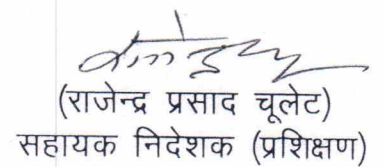 (राजेन्द्र प्रसाद चूलेट)
सहायक निदेशक (प्रशिक्षण)